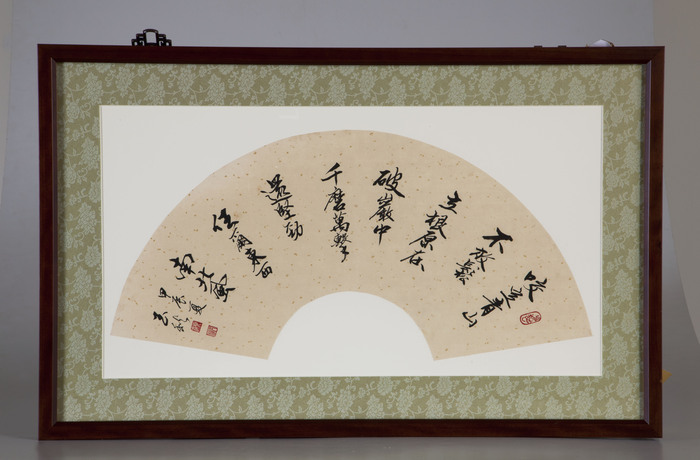 咬定青山
不放鬆
立根原在
破巖中
千磨萬擊
還堅勁
任爾東西
南北風
甲辰夏